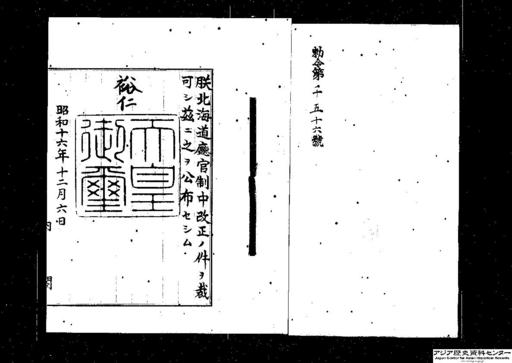 勅令第千五十六號
朕北海道廳官制中改正ノ件ヲ裁
可シ茲ニ之ヲ公布セシム
裕仁
天皇御璽
昭和十六年十二月六日
内閣
アジア歴史資料センター
Japan Center for Asian Historical Records